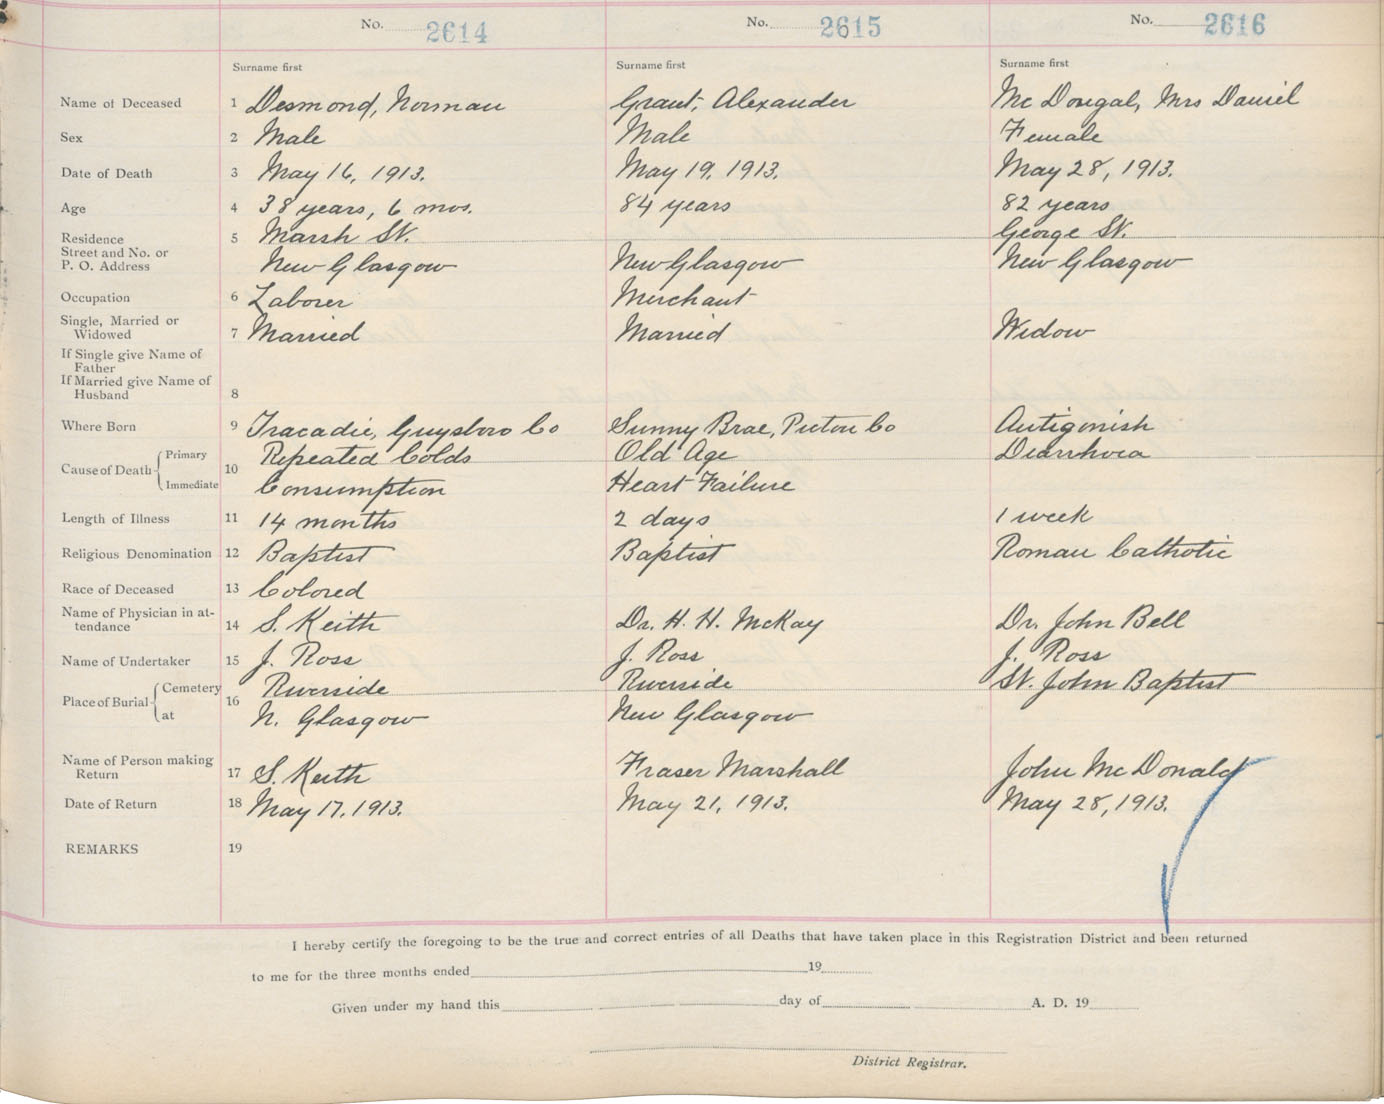 No. 2614 No. 2615 No. 2616
Surname first Surname first Surname first
Name of Deceased 1 Desmond, Norman Grant, Alexander Mc Dougal, Mrs Daniel
Sex 2 Male Male Female
Date of Death 3 May 16, 1913. May 19, 1913. May 28, 1913.
Age 4 38 years, 6 mos. 84 years 82 years
Residence 5 Marsh St. George St.
Street and No. or
P. O. Address New Glasgow New Glasgow New Glasgow
Occupation 6 Laborer Merchant
Single, Married or
Widowed 7 Married Married Widow
If Single give Name of
Father
If Married give Name of
Husband 8
Where Born 9 Tracadie, Guysboro Co Sunny Brae, Pictou Co Antigonish
Cause of Death Primary 10 Repeated Colds Old Age Diarrhoea
Immediate Consumption Heart Failure
Length of Illness 11 14 months 2 days 1 week
Religious Denomination 12 Baptist Baptist Roman Catholic
Race of Deceased 13 Colored
Name of Physician in at-
tendance 14 S. Keith Dr. H. H. McKay Dr. John Bell
Name of Undertaker 15 J. Ross J. Ross J. Ross
Place of Burial Cemetery 16 Riverside Riverside St. John Baptist
at N. Glasgow New Glasgow
Name of Person making
Return 17 S. Keith Fraser Marshall John Mc Donald
Date of Return 18 May 17, 1913. May 21, 1913. May 28, 1913.
REMARKS 19
I hereby certify the foregoing to be the true and correct entries of all Deaths that have taken place in this Registration District and been returned
to me for the three months ended 19
Given under my hand this day of A. D. 19
District Registrar.